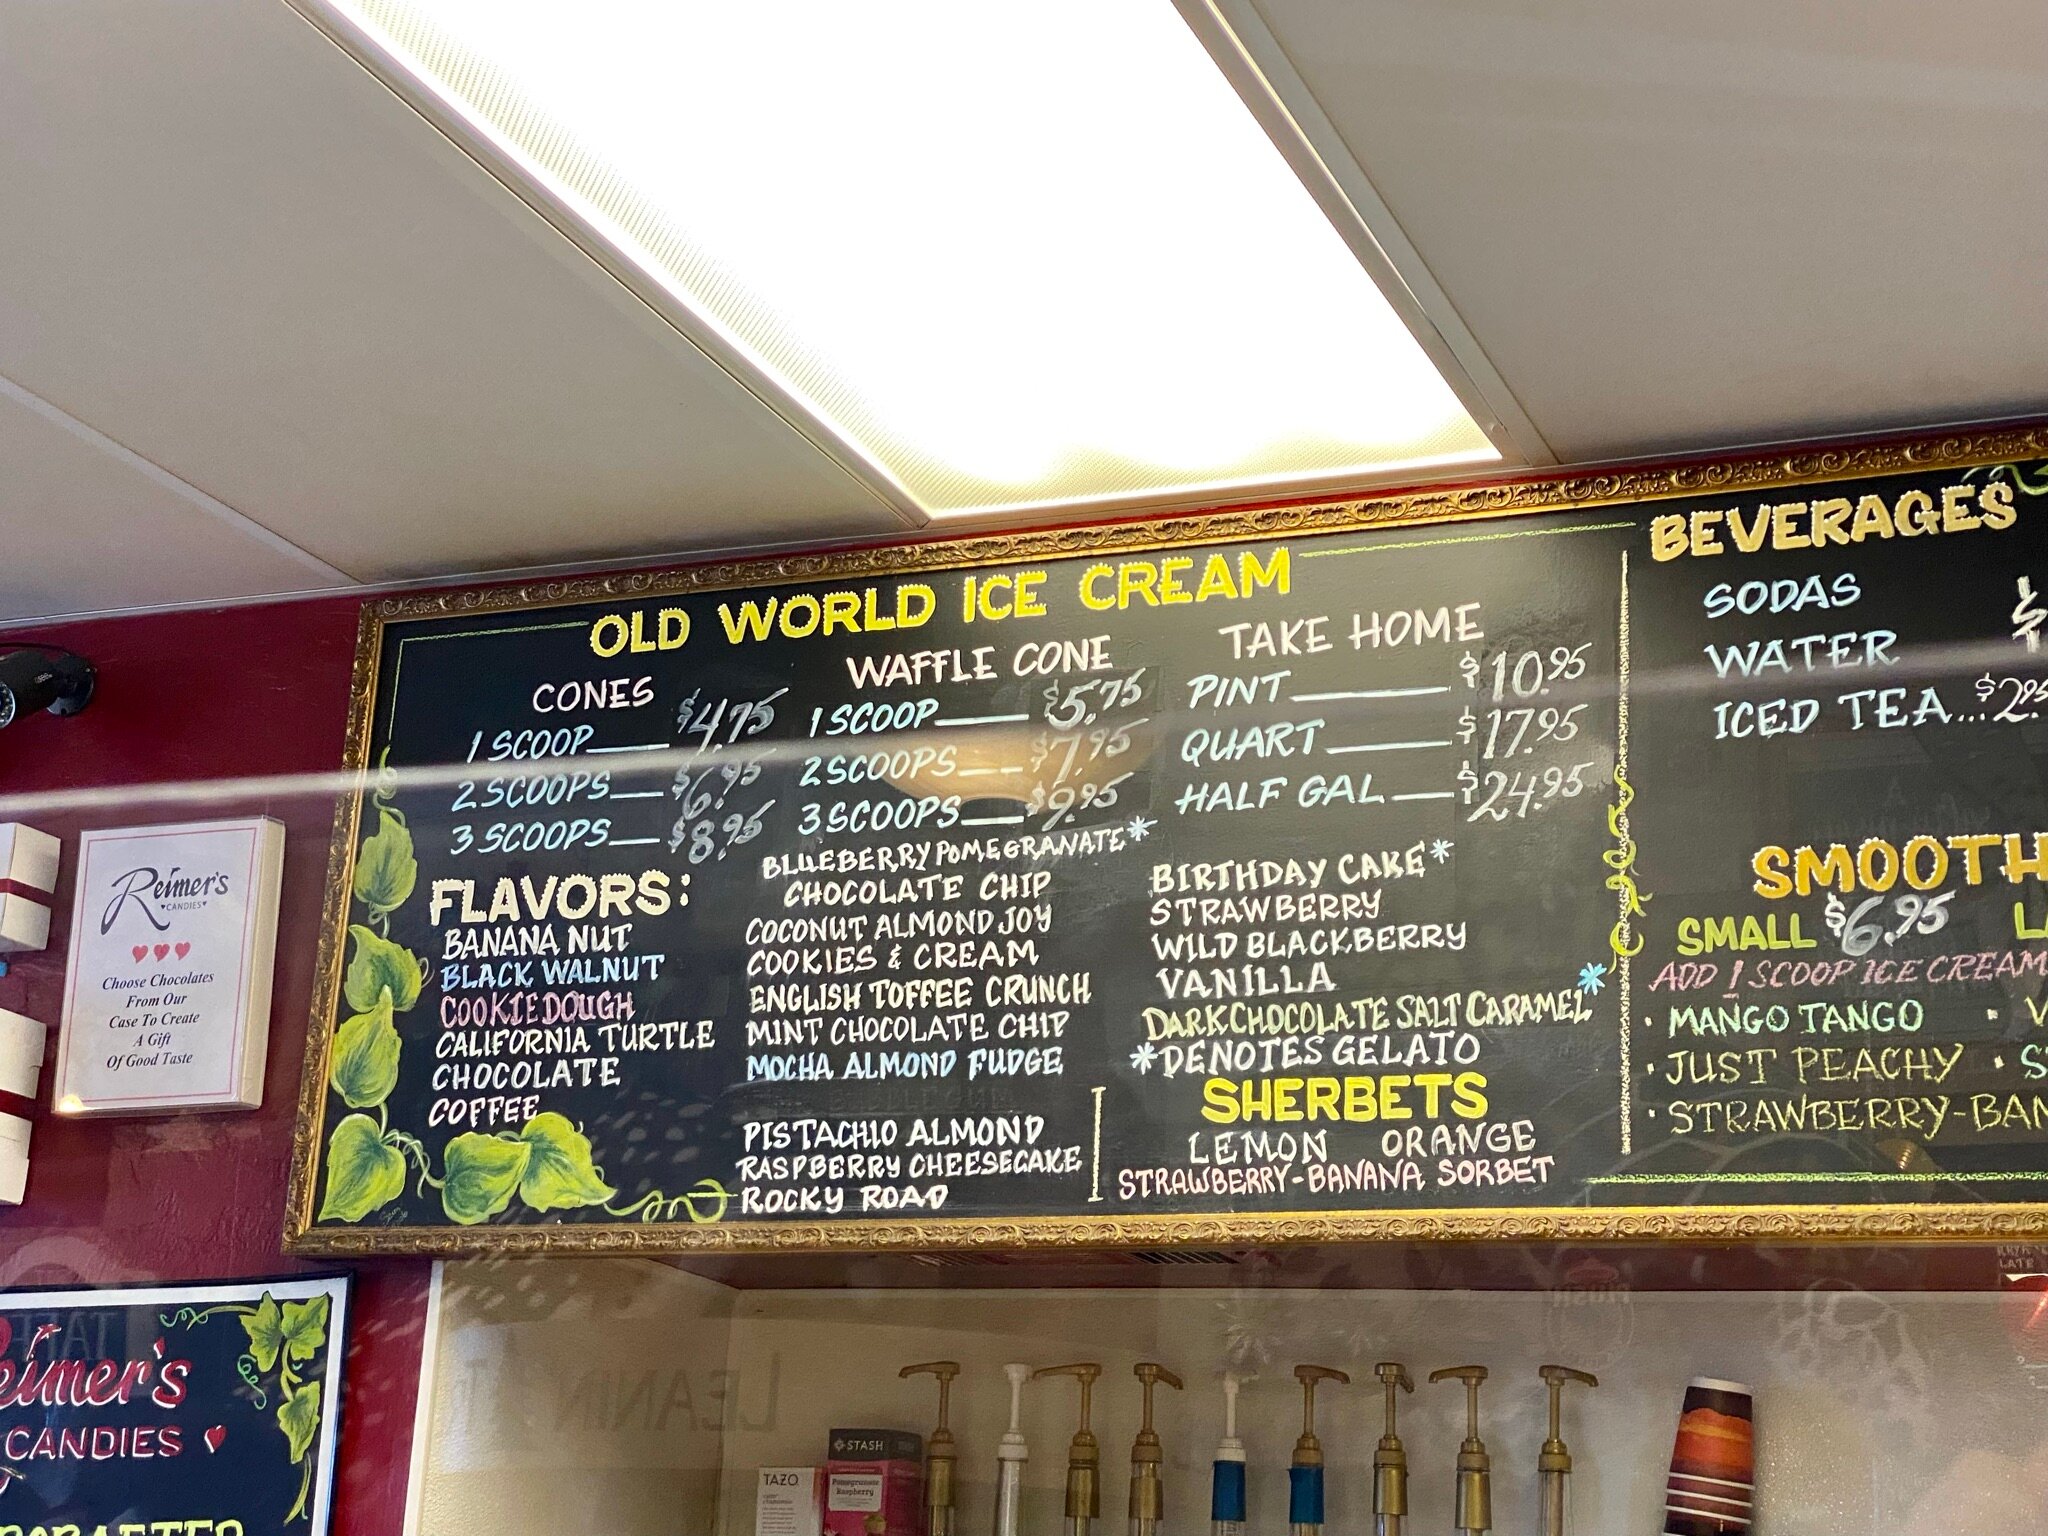 OLD WORLD ICE CREAM
CONES
1 SCOOP $4.75
2 SCOOPS $6.95
3 SCOOPS $8.95
WAFFLE CONE
1 SCOOP $5.75
2 SCOOPS $7.95
3 SCOOPS $9.95
TAKE HOME
PINT $10.95
QUART $17.95
HALF GAL $24.95
FLAVORS:
BANANA NUT
BLACK WALNUT
COOKIE DOUGH
CALIFORNIA TURTLE
CHOCOLATE
COFFEE
BLUEBERRY POMEGRANATE*
CHOCOLATE CHIP
COCONUT ALMOND JOY
COOKIES & CREAM
ENGLISH TOFFEE CRUNCH
MINT CHOCOLATE CHIP
MOCHA ALMOND FUDGE
PISTACHIO ALMOND
RASPBERRY CHEESECAKE
ROCKY ROAD
BIRTHDAY CAKE*
STRAWBERRY
WILD BLACKBERRY
VANILLA
DARK CHOCOLATE SALT CARAMEL*
*DENOTES GELATO
SHERBETS
LEMON ORANGE
STRAWBERRY-BANANA SORBET
BEVERAGES
SODAS
WATER
ICED TEA...$2.95
SMOOTH
SMALL $6.95
ADD 1 SCOOP ICE CREAM
· MANGO TANGO
· JUST PEACHY
· STRAWBERRY-BAN
Reimer's
CANDIES
Choose Chocolates
From Our
Case To Create
A Gift
Of Good Taste
eimer's
CANDIES
TAZO
STASH
Pomegranate
Raspberry